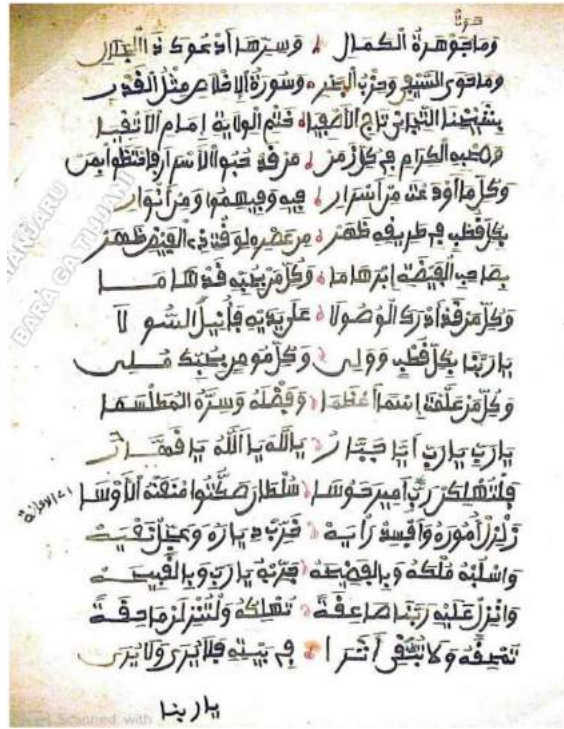 وَمَا جَوْهَرَةُ الْكَمَالِ وَسِرِّهَا أَدْعُوكَ ذَا الْجَلَالِ
وَمَا حَوَى السَّيْفِي وَحِزْبُ الْبَحْرِ وَسُورَةُ الْإِخْلَاصِ مِثْلُ الْقَدْرِ
بِشَيْخِنَا التِّجَانِي تَاجِ الْأَصْفِيَا خَتْمِ الْوِلَايَةِ إِمَامِ الْأَتْقِيَا
وَصَحْبِهِ الْكِرَامِ فِي كُلِّ زَمَنْ مَنْ قَدْ حُبُوا الْأَسْرَارَ
وَكُلِّ مَا أَوْدَعْتَ مِنْ أَسْرَارِ فِيهِ وَفِيهِمُو وَمِنْ أَنْوَارِ
بِكُلِّ قُطْبٍ فِي طَرِيقِهِ ظَهَرْ مِنْ عَصْرِهِ لِوَقْتِ ذِي الْفَيْضِ ظَهَرْ
بِصَاحِبِ الْفَيْضَةِ إِبْرَهَامَا وَكُلِّ مَنْ بِحُبِّهِ قَدْ هَامَا
وَكُلِّ مَنْ قَدْ أَدْرَكَ الْوُصُولَا عَلَى يَدَيْهِ فَأَنِيلُ السُّولَا
يَا رَبَّنَا بِكُلِّ قُطْبٍ وَوَلِي وَكُلِّ مَنْ مِنْ حُبِّكَ مُلِي
وَكُلِّ مَنْ عَلَّمْتَ اِسْمًا أَعْظَمَا وَفَضْلَهُ وَسِرَّهُ الْمُطَلْسَمَا
يَا رَبِّ يَا رَبِّ أَيَا جَبَّارُ يَا اللَّهُ يَا اللَّهُ يَا قَهَّارُ
فَلْتُهْلِكَنْ رَبِّ أَمِيرَ حَوْسَا سُلْطَانَ صَكَّتُوا
زَلْزِلْ أُمُورَهُ وَأَفْسِدْ رَأْيَهْ خَرِّبْ دِيَارَهُ وَعَجِّلْ نَعْيَهْ
وَاسْلُبْهُ مُلْكَهُ وَبِالْفَضِيحَهْ يَا رَبِّ وَبِالْقَبِيحَهْ
وَانْزِلْ عَلَيْهِ رَبَّنَا صَاعِقَةً تُهْلِكُهُ وَلْتُنْزِلَنْ مَاحِقَةً
تَمْحَقُهُ وَلَا تُبْقِي أَثَرَا فِي بَيْتِهِ فَلَا يَرَى وَلَا يُرَى
يا ربنا
MANJARU
BARA GA TIJJANI
Scanned with